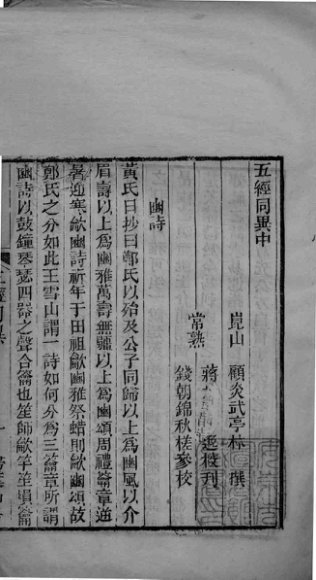 五經同異中
崑山 顧炎武亭林 撰
常熟
蔣 校刊
錢朝錦秋槎參校
豳詩
黃氏日抄曰鄭氏以殆及公子同歸以上爲豳風以介
眉壽以上爲豳雅萬壽無疆以上爲豳頌周禮籥章逆
暑迎寒歙豳詩祈年于田祖歙豳雅祭蜡則歙豳頌故
鄭氏之分如此王雪山謂一詩如何分爲三籥章所謂
豳詩以鼓鐘琴瑟四器之聲合籥也笙師歙竽笙塤籥